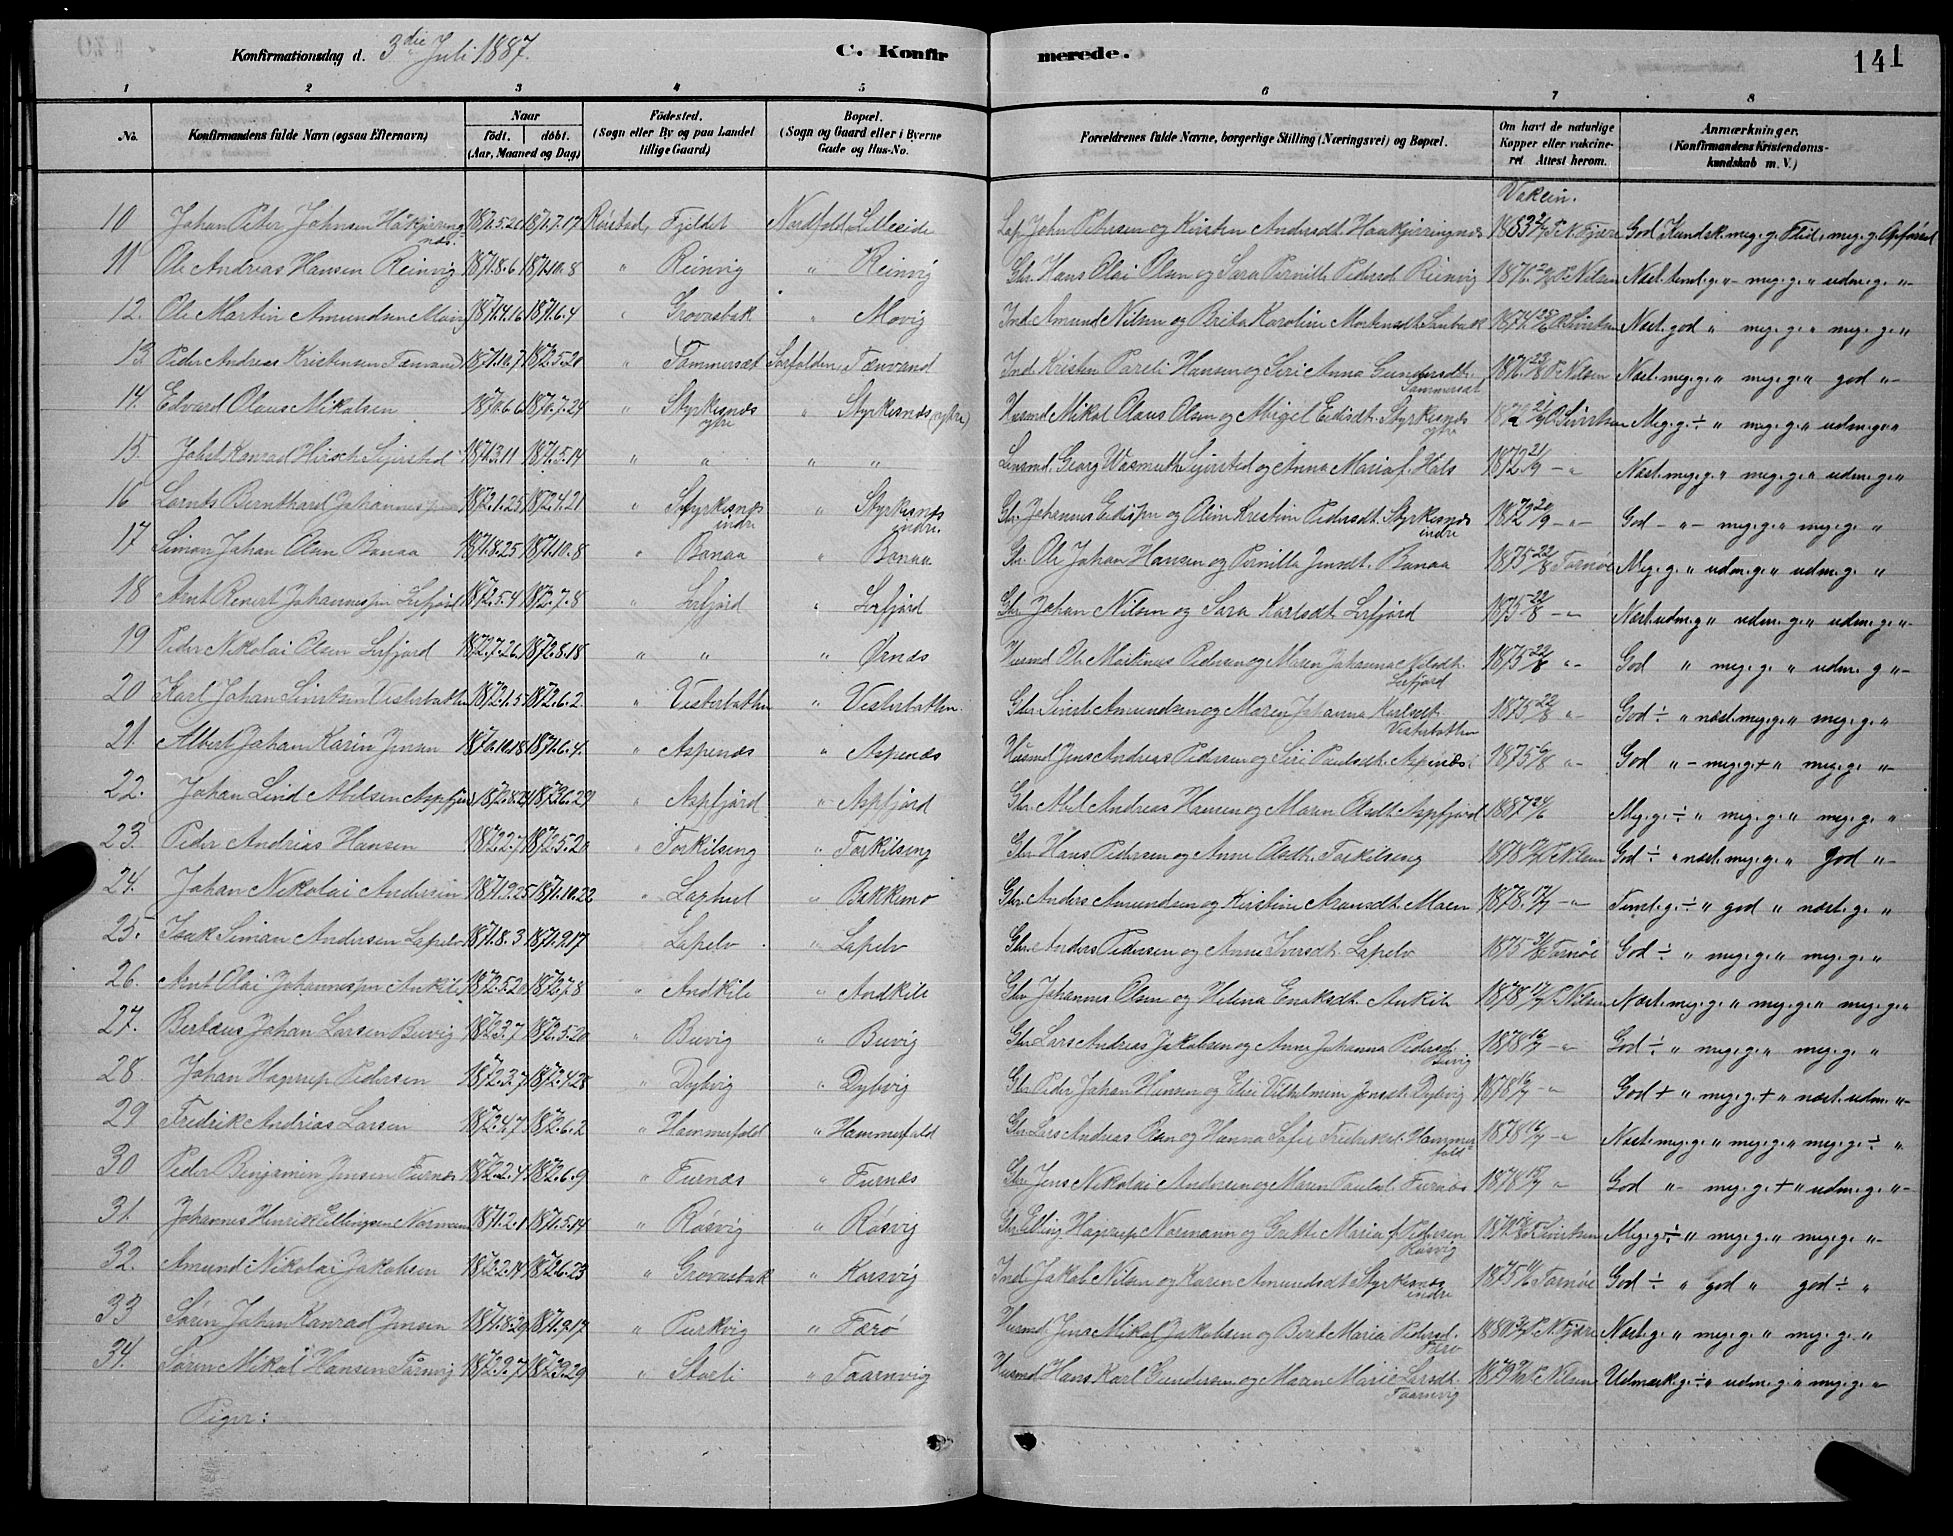 Konfirmationsdag d. 3die Juli 1887.
C. Konfirmerede.
141
1 2 3 4 5 6 7 8
No. Konfirmandens fulde Navn (ogsaa Efternavn) Naar födt. döbt. (Aar, Maaned og Dag) Födested. (Sogn eller By og paa Landet tillige Gaard) Bopæl. (Sogn og Gaard eller i Byerne Gade og Hus-No. Forældrenes fulde Navne, borgerlige Stilling (Næringsvei) og Bopæl. Om havt de naturlige Kopper eller vakcineret Attest herom. Anmærkninger. (Konfirmandens Kristendomskundskab m. V.)
Vakcin.
10 Johan Peter Johnsen 1871.7.17 Rørstad, Fjeldet Nordfold Lilleeide Lap John Petersen og Kirsten Andersdt. Haakjærringnes N. Fjære God Kundsk. meg. g. Flid, meg. g. Opførsel
11 Ole Andreas Hansen Reinvig 1871.8.6 1871.10.8 " Reinvig " Reinvig Gbr. Hans Olai Olsen og Sara Pernille Pedersdt. Reinvig 1876 P. Nilsen
12. Ole Martin Amundsen 1871.4.16 1871.6.4 " Grovasbak " Movig Ind. Amund Nilsen og Berta Karoline 1874 Næst. god " meg. g. " meg. g. "
13 Peder Andreas Kristensen 1871.10.7 1872.5.20 " Tommersæt Sørfolden, Tænvand Ind. Kristen Pareli Hansen og Siri Anna Gundersdt. 1876 P. Nilsen Næst. meg. g. " meg. g. " god "
14. Edvard Olaus Mikalsen 1870.6.6 1870.7.24 " Styrkesnæs ytre " Styrkesnæs (ytre) Husmd. Mikal Olaus Olsen og Abigel Styrkesnæs ytre Meg. g. ÷ " meg. g. " udm. g. "
15. Konrad Hirsch 1871.3.11 1871.5.14 " " " " Lensmd. Georg Wasmuth og Anna Maria f. Hals 1872 - " Næst. meg. g. " meg. g. " udm. g. "
16 Lornts Bernthard 1872.1.25 1872.4.21 " Styrkesnæs indre " Styrkesnæs indre. Gbr. Johannes og Kristine Pedersdt. Styrkesnæs indre 1872 - " God - " - meg. g. " meg. g. "
17 Simon Johan Olsen Bonaa 1871.8.25 1871.10.8 " Bonaa " Bonaa Gbr. Ole Johan Hansen og Pernilla Jensdt. Bonaa 1875 Tornøe Meg. g. " udm. g. " udm. g. "
18 Arnt Johannessen Lerfjord 1872.5.4 1872.7.8 " Lerfjord " Lerfjord Gbr. Johan Nilsen og Sara Karlsdt. Lerfjord 1875 - " Næst. udm. g. " udm. g. " udm. g. "
19 Peder Nikolai Olsen Lerfjord 1872.7.26 1872.8.18 " " " Ørnes Husmd. Ole Martinus Pedersen og Maren Johanna Nilsdt. Lerfjord 1875 " God " meg. g. " udm. g "
20 Karl Johan 1872.1.5 1872.6.2 " Vesterbotten " Vesterbotten Gbr. Amundsen og Maren Johanna Karlsdt. Vesterbotten 1875 " God ÷ " næst. meg. g. " meg. g. "
21. Albert Johan Karin Jensen 1870.10.18 1871.6.4 " Aspenæs " Aspenæs Husmd. Jens Andreas Pedersen og Siri Paulsdt. Aspenæs 1875 " God " - meg. g. + " meg. g. "
22. Johan Lind Abelsen Aspfjord 1873.6.29 " Aspfjord " Aspfjord Gbr. Abel Andreas Hansen og Maren Olsdt. Aspfjord 1887 Meg. g. ÷ " meg. g. " meg. g. "
23. Peder Andreas Hansen 1872.2.7 1872.5.20 " Torkilseng " Torkilseng Gbr. Hans Pedersen og Anne Olsdt. Torkilseng 1878 P. Nilsen God ÷ " næst. meg. g. " god "
24. Johan Nikolai Andersen 1871.9.25 1871.10.22 " Laphul " Bakkemo Gbr. Anders Amundsen og Kirstine Moen 1878 - " Teml. g. ÷ " god " næst. g. "
25. Isak Simon Andersen Lapelv 1871.8.3 1871.9.17 " Lapelv " Lapelv Gbr. Anders Pedersen og Anne Iversdt. Lapelv 1875 Tornøe God ÷ " meg. g. " meg. g. "
26. Arnt Olai Johannessen 1872.5.20 1872.7.8 " Andkile " Andkile Gbr. Johannes Olsen og Helena 1878 P. Nilsen Næst. meg. g. " meg. g. " meg. g. "
27. Bertæus Johan Larsen Buvig 1872.3.7 1872.5.20 " Buvig " Buvig Gbr. Lars Andreas Jakobsen og Anne Johanna Pedersd. Buvig 1878 - " God ÷ " meg. g. " meg. g. "
28. Johan Hagerup Pedersen 1872.3.7 1872.4.28 " Dybvig " Dybvig Gbr. Peder Johan Hansen og Vilhelmine Jensdt. Dybvig 1878 - " God + " meg. g. + " næst. udm. "
29 Fredrik Andreas Larsen 1872.4.7 1872.6.2 " Hammerfald " Hammerfald Gbr. Lars Andreas Olsen og Hanna Sofie Hammerfald 1878 - " Næst. meg. g " meg. g. " meg. g. ÷ "
30 Peder Benjamin Jensen Furnæs 1872.2.4 1872.6.9 " Furnæs " Furnæs Gbr. Jens Nikolai Andersen og Maren Paulsd. Furnæs 1878 " God " meg. g. + " udm. g. "
31. Johannes Henrik Ellingsen Normann 1871.2.1 1871.5.14 " Røsvig " Røsvig Gbr. Elling Hagerup Normann og Grethe Maria f. Pedersen Røsvig Meg. g. ÷ " meg. g. " meg. g. "
32. Amund Nikolai Jakobsen 1872.2.14 1872.6.23 " Grovasbak " Korsvig Ind. Jakob Nilsen og Karen Amundsdt. Styrkesnæs indre 1875 Tornøe God ÷ " god " god ÷ "
33 Søren Johan Konrad Jensen 1871.8.20 1871.9.17 " Purkvig " Færø Husmd. Jens Mikal Jakobsen og Berit Maria Pedersd. Færø 1880 N. Fjære Næst. g. " meg. g. " meg. g. "
34. Søren Mikal Hansen 1872.3.29 " Storli " Taarnvig Husmd. Hans Karl Gundersen og Maren Marie Larsdt. Taarnvig 1879 P. Nilsen Udmærk. g. ÷ " udm. g. " meg. g. "
Piger: